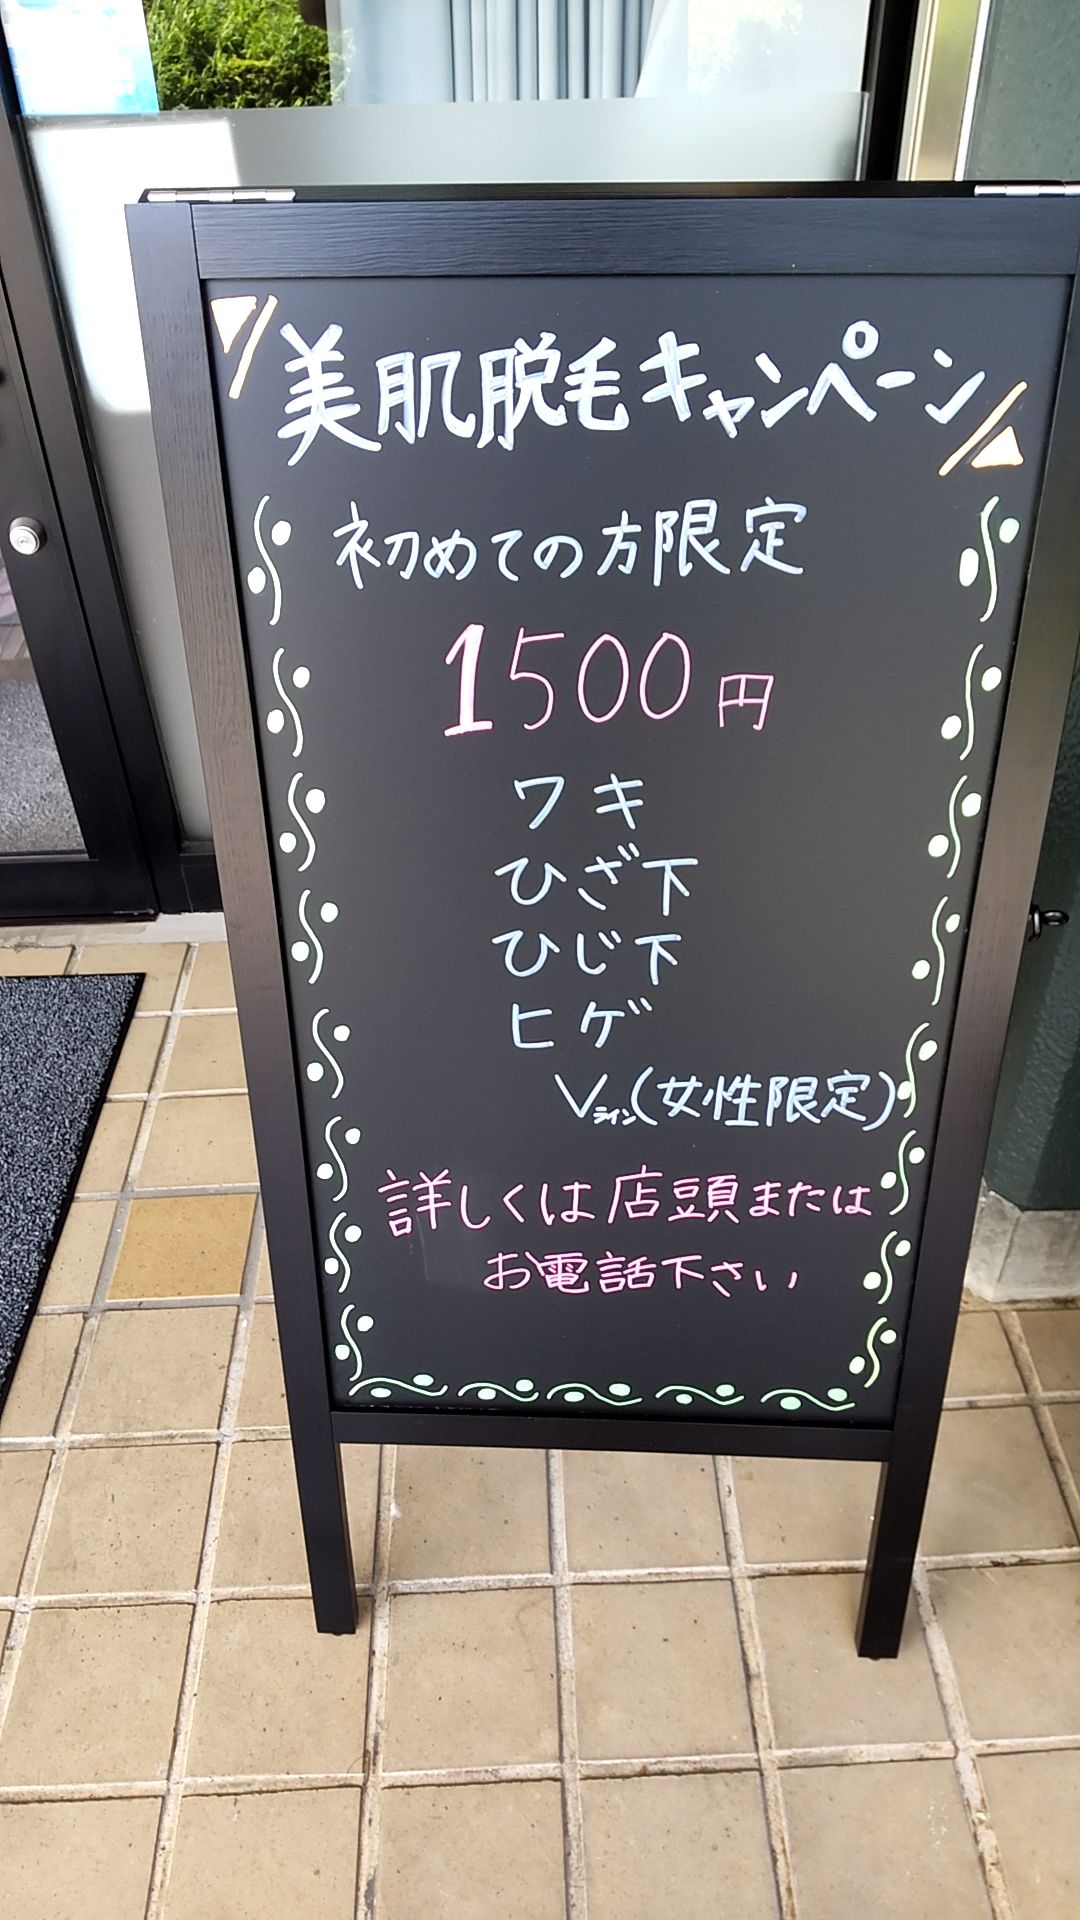 美肌脱毛キャンペーン
初めての方限定
1500円
ワキ
ひざ下
ひじ下
ヒゲ
Vライン(女性限定)
詳しくは店頭または
お電話下さい